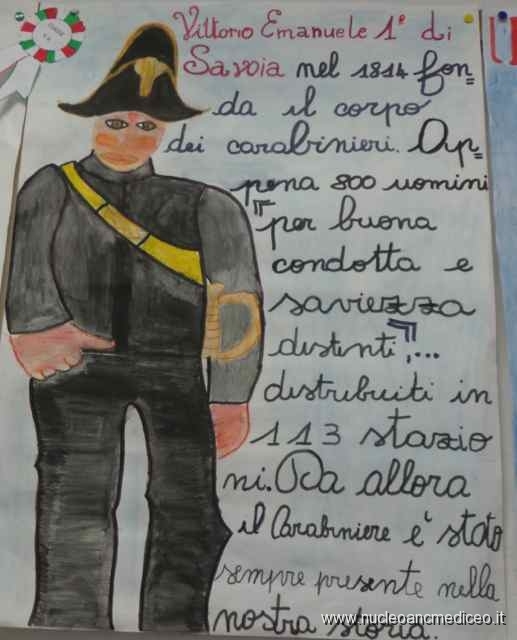 Vittorio Emanuele 1° di
Savoia nel 1814 fon=
da il corpo
dei carabinieri. Ap=
pena 800 uomini
"per buona
condotta e
saviezza
distinti",...
distribuiti in
113 stazio
ni. Da allora
il Carabiniere è stato
sempre presente nella
nostra storia
www.nucleoancmediceo.it